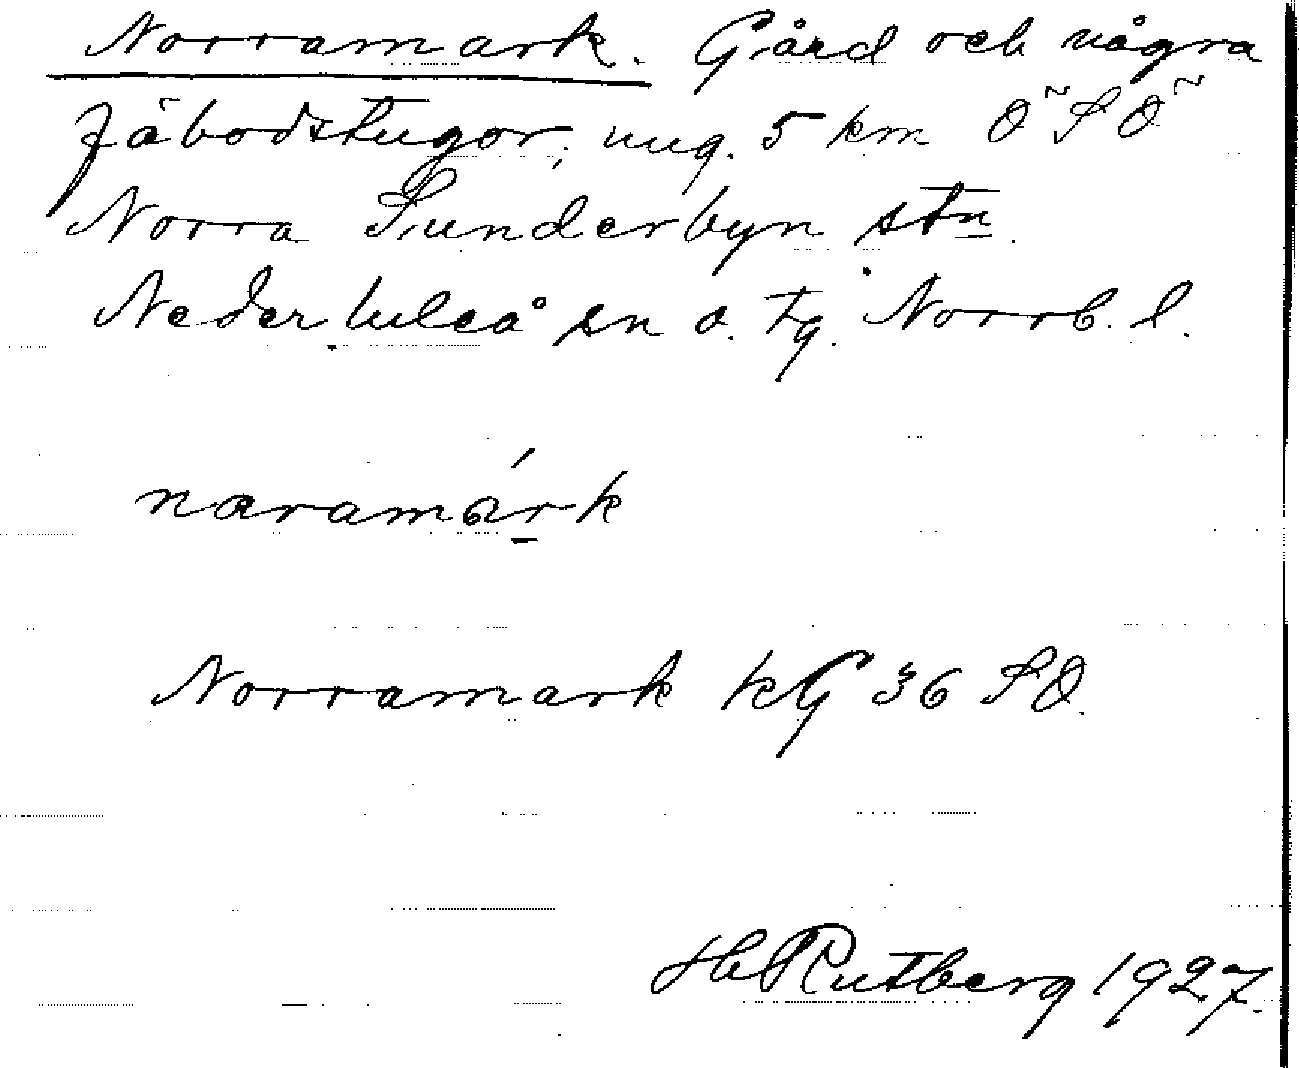 Norramark. Gård och några
fäbodstugor, ung. 5 km ÖSÖ
Norra Sunderbyn stn.
Nederluleå sn o. tg. Norrb. l.
naramárk
Norramark kG 36 SO.
H. Rutberg 1927.